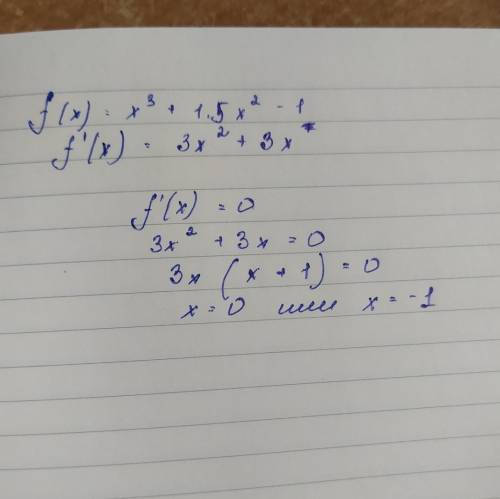 f(x) = x³ + 1.5x² - 1
f'(x) = 3x² + 3x
f'(x) = 0
3x² + 3x = 0
3x (x + 1) = 0
x = 0 или x = -1